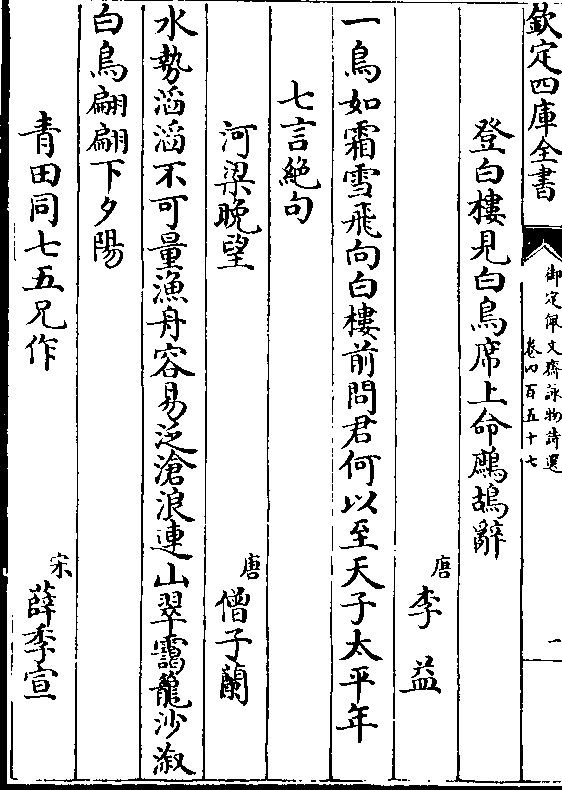 欽定四庫全書
御定佩文齋詠物詩選
卷四百五十七
一
登白樓見白鳥席上命鷓鴣辭
唐李益
一鳥如霜雪飛向白樓前問君何以至天子太平年
七言絶句
河梁晚望
唐僧子蘭
水勢滔滔不可量漁舟容易泛滄浪連山翠靄籠沙溆
白鳥翩翩下夕陽
青田同七五兄作
宋薛季宣